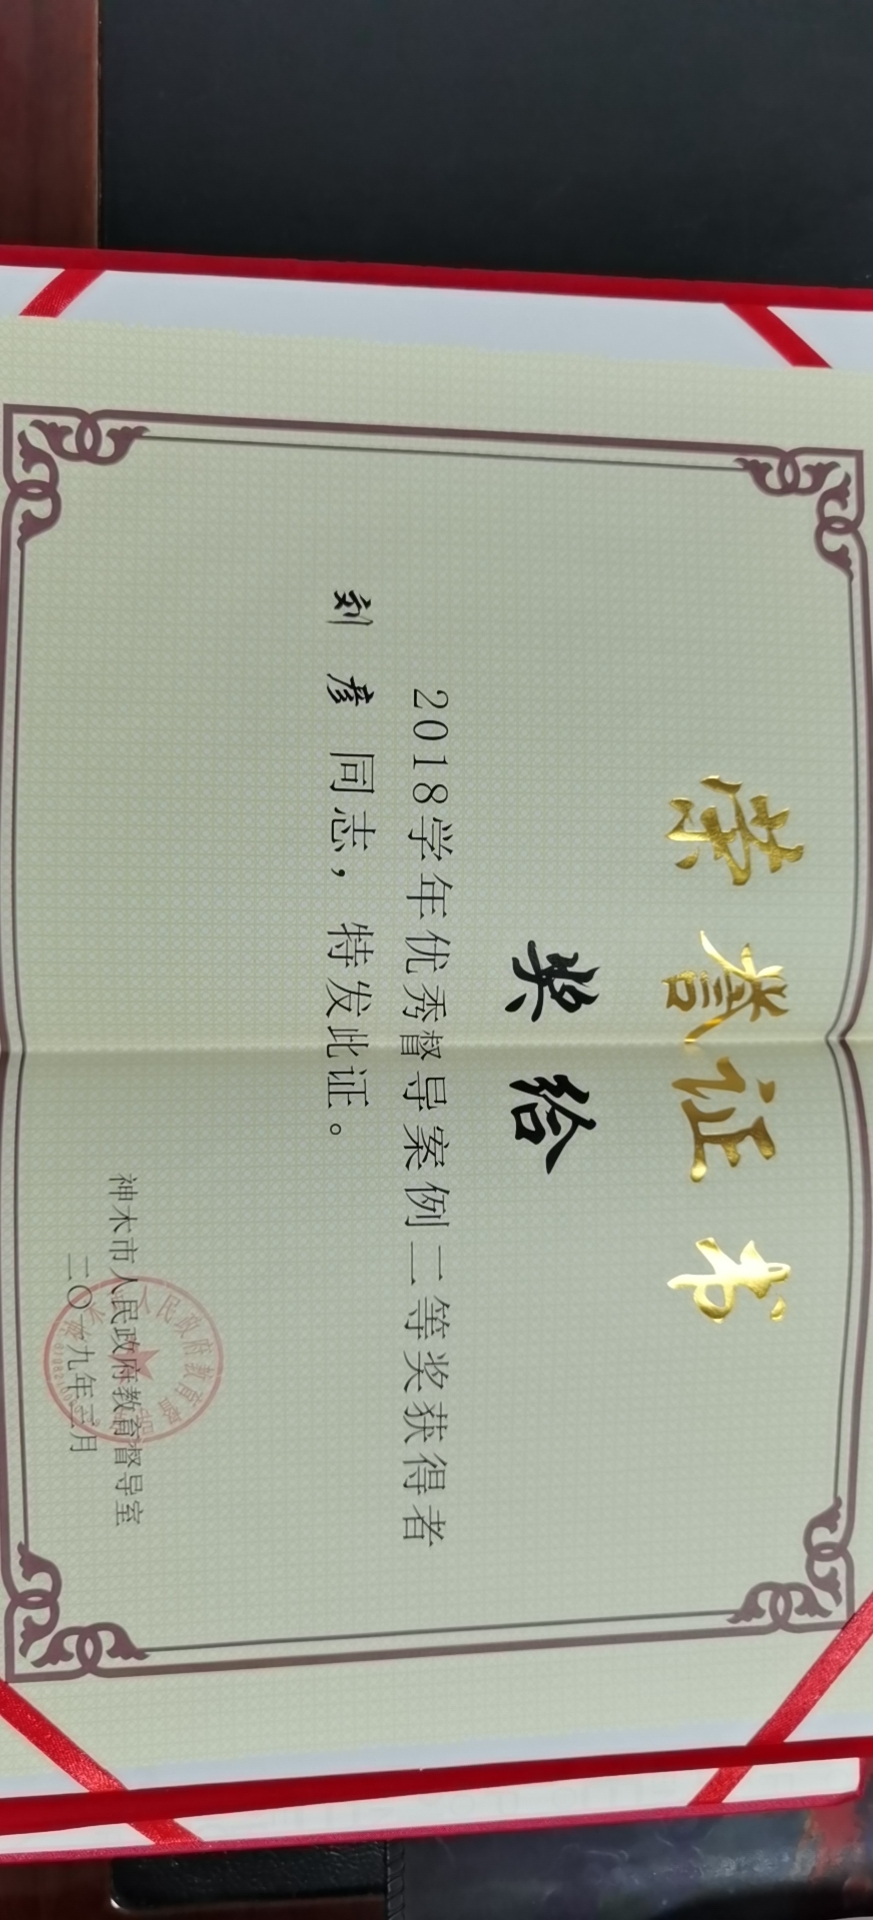 荣誉证书
奖给
2018学年优秀督导案例二等奖获得者
刘彦同志，特发此证。
神木市人民政府教育督导室
二〇一九年三月